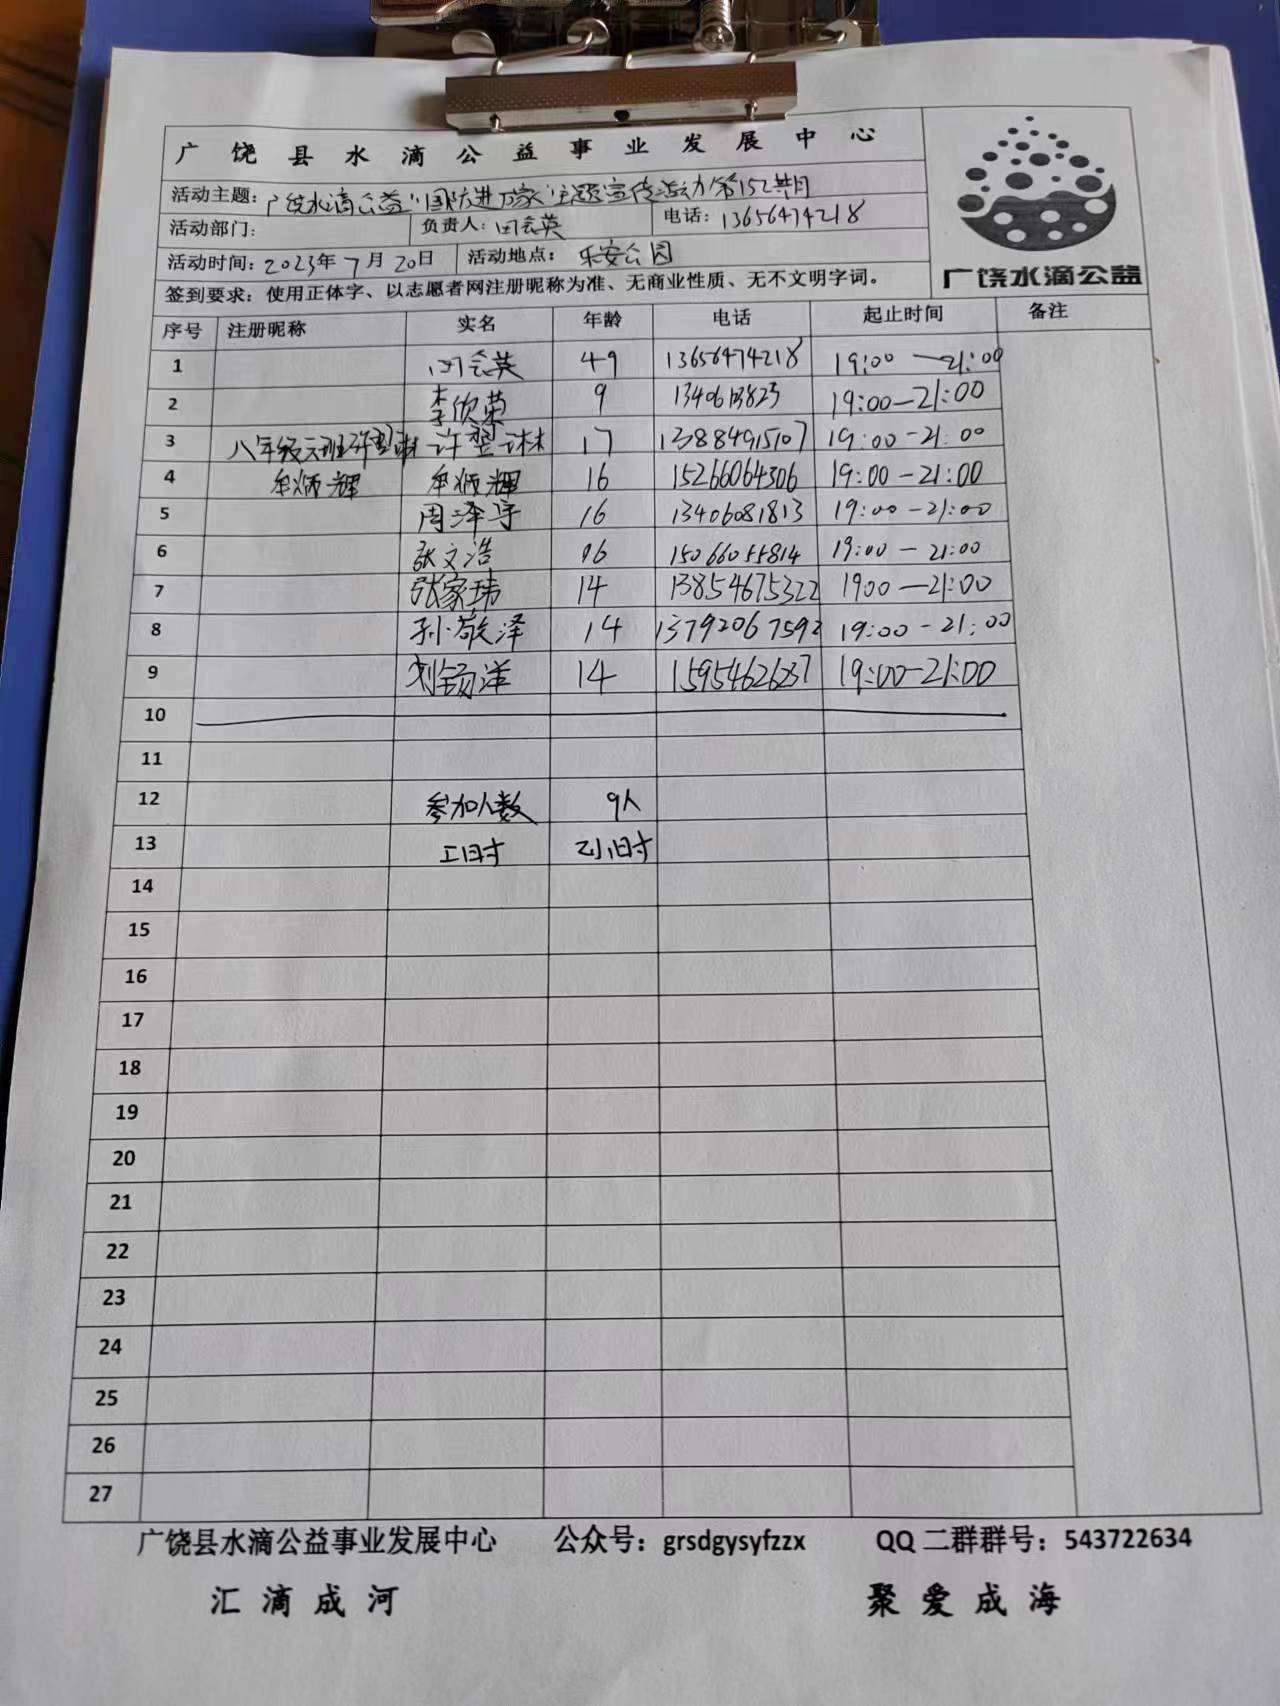 广饶县水滴公益事业发展中心
活动主题：广饶水滴公益"国防进万家"主题宣传活动第152期
活动部门： 负责人：田会英 电话：13656474218
活动时间：2023年7月20日 活动地点：乐安公园
广饶水滴公益
签到要求：使用正体字、以志愿者网注册昵称为准、无商业性质、无不文明字词。
序号 注册昵称 实名 年龄 电话 起止时间 备注
1 田会英 49 13656474218 19:00—21:00
2 李欣荣 9 19:00—21:00
3 八年级六班许翌琳 许翌琳 17 13884915107 19:00-21:00
4 牟炳辉 牟炳辉 16 15266064306 19:00-21:00
5 周泽宇 16 13406081813 19:00-21:00
6 张文浩 16 15066055814 19:00-21:00
7 张家玮 14 13854675322 1900—21:00
8 孙敬泽 14 13792067592 19:00-21:00
9 刘钖洋 14 15954626237 19:00-21:00
10
11
12 参加人数 9人
13 工时 2小时
14
15
16
17
18
19
20
21
22
23
24
25
26
27
广饶县水滴公益事业发展中心 公众号：grsdgysyfzzx QQ二群群号：543722634
汇滴成河 聚爱成海